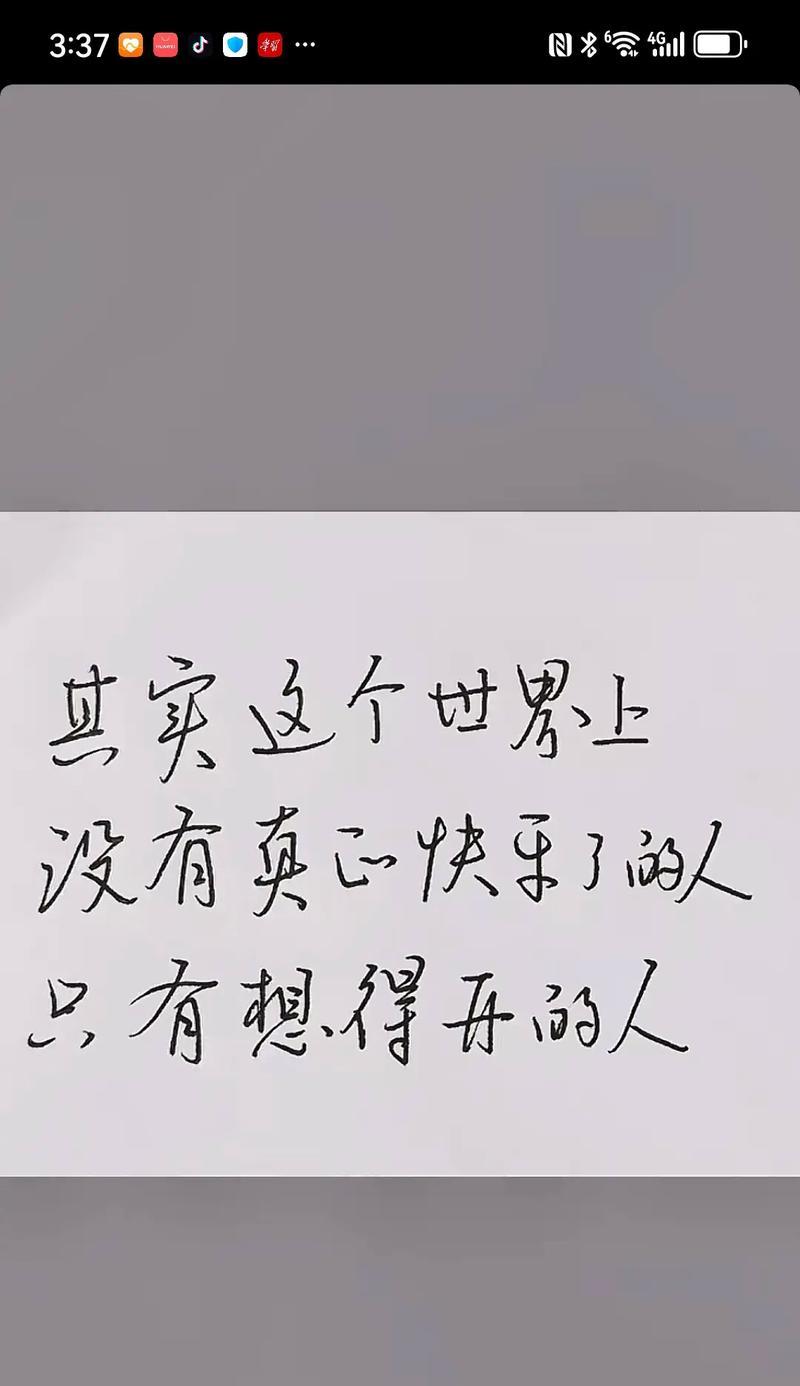 3:37 学习 6 4G
其实这个世界上
没有真正快乐了的人
只有想得开的人